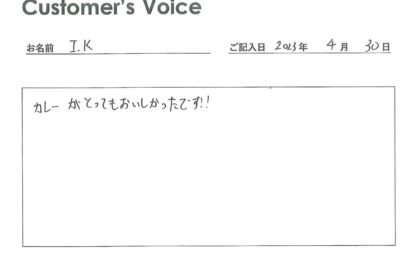 Customer's Voice
お名前 I.K ご記入日 2023年 4月 30日
カレーがとってもおいしかったです!!